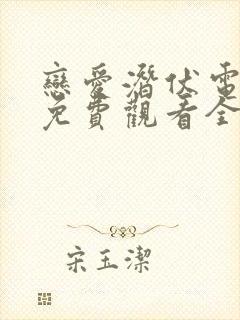 戀愛潛伏電
免費觀看全
宋玉潔